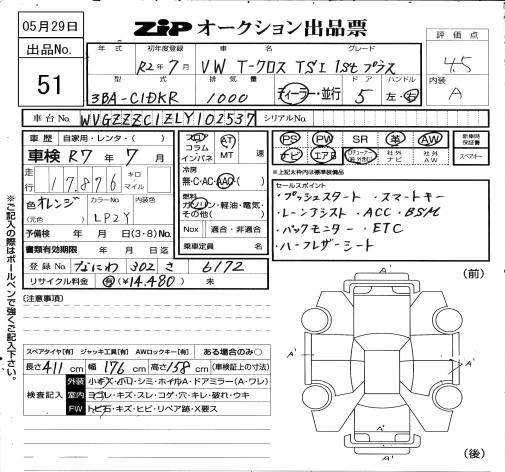 05月29日
ZIP オークション出品票
出品No.
51
評価点
4.5
内装
A
年式 初年度登録 車名 グレード
R2年7月 VW T-クロス TSI 1st プラス
型式 排気量 ドア ハンドル
3BA-C1DKR 1000 ディーラー・並行 5 左・右
車台No. WVGZZZC1ZLY102537 シリアルNo.
車歴 自家用・レンタ・( )
車検 R7年7月
走行 17,876 キロ マイル
色 オレンジ カラーNo. LP2Y 内装色
(元色)
予備検 年 月 日(3・8)No.
書類有効期限 年 月 日迄
登録No. なにわ 302 さ 6172
リサイクル料金 有(¥14,480) 未
フロア コラム インパネ AT MT 速
冷房
無・C・AC・AAC( )
燃料
ガソリン・軽油・電気・その他( )
Nox 適合・非適合
乗車定員 名
PS PW SR 革 AW
ナビ エアB TVチューナー(地・外含む) 社外ナビ 社外AW
新車時保証書
スペアキー
※上記太枠内は標準装備品
セールスポイント
・プッシュスタート ・スマートキー
・レーンアシスト ・ACC ・BSM
・バックモニター ・ETC
・ハーフレザーシート
※ご記入の際はボールペンで強くご記入下さい。
(注意事項)
スペアタイヤ[有] ジャッキ工具[有] AWロックキー[有] ある場合のみ○
長さ 411 cm 幅 176 cm 高さ 158 cm (車検証上の寸法)
検査記入
外装 小キズ・小凹・シミ・ホイルA・ドアミラー(A・ワレ)
室内 ヨゴレ・キズ・スレ・コゲ・穴・キレ・破れ・ウキ
FW トビ石・キズ・ヒビ・リペア跡・X要ス
(前)
A'
A'
A'
A'
A'
(後)